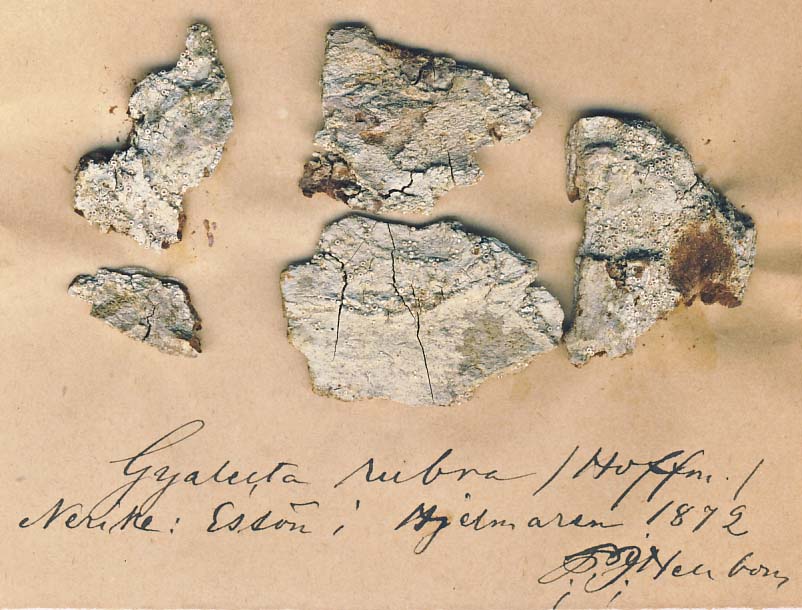 Gyalecta rubra (Hoffm.)
Nerike: Essön i Hjelmaren 1872
P. J. Hellbom